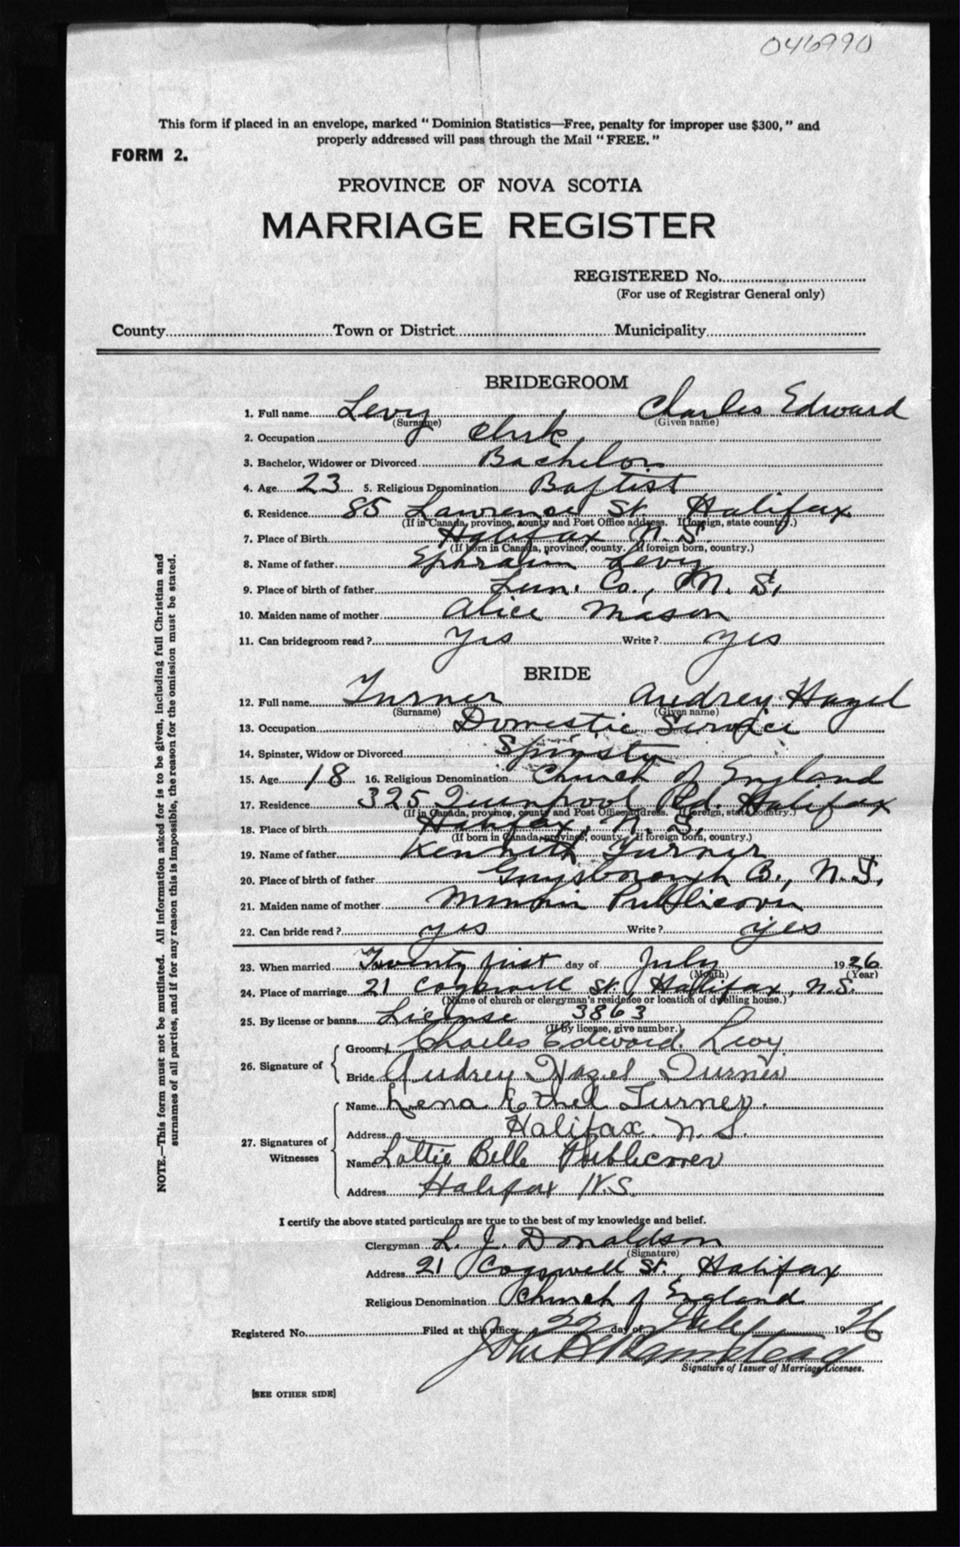 046990
This form if placed in an envelope, marked "Dominion Statistics—Free, penalty for improper use $300," and
properly addressed will pass through the Mail "FREE."
FORM 2.
PROVINCE OF NOVA SCOTIA
MARRIAGE REGISTER
REGISTERED No.
(For use of Registrar General only)
County Town or District Municipality
BRIDEGROOM
1. Full name Levy Charles Edward
(Surname) (Given name)
2. Occupation Clerk
3. Bachelor, Widower or Divorced Bachelor
4. Age 23 5. Religious Denomination Baptist
6. Residence 85 Lawrence St. Halifax
(If in Canada, province, county and Post Office address. If foreign, state country.)
7. Place of Birth Halifax N.S.
(If born in Canada, province, county. If foreign born, country.)
8. Name of father Ephraim Levy
9. Place of birth of father Lun. Co., N. S.
10. Maiden name of mother Alice Mason
11. Can bridegroom read? Yes Write? Yes
BRIDE
12. Full name Turner Audrey Hazel
(Surname) (Given name)
13. Occupation Domestic Service
14. Spinster, Widow or Divorced Spinster
15. Age 18 16. Religious Denomination Church of England
17. Residence 325 Quinpool Rd. Halifax
(If in Canada, province, county and Post Office address. If foreign, state country.)
18. Place of birth Halifax, N. S.
(If born in Canada, province, county. If foreign born, country.)
19. Name of father Kenneth Turner
20. Place of birth of father Guysborough N.S.
21. Maiden name of mother Minnie Publicover
22. Can bride read? yes Write? yes
23. When married Twenty first day of July 1926
(Month) (Year)
24. Place of marriage 21 Cogswell St., Halifax, N.S.
(Name of church or clergyman's residence or location of dwelling house.)
25. By license or banns License 3863
(If by license, give number.)
26. Signature of
Groom Charles Edward Levy
Bride Audrey Hazel Turner
27. Signatures of Witnesses
Name Lena Ethel Turner.
Address Halifax. N. S.
Name Lottie Belle Publicover
Address Halifax N.S.
I certify the above stated particulars are true to the best of my knowledge and belief.
Clergyman L. J. Donaldson
(Signature)
Address 21 Cogswell St. Halifax
Religious Denomination Church of England
Registered No. Filed at this office 22 day of July 1926
Signature of Issuer of Marriage Licenses.
[SEE OTHER SIDE]
NOTE.—This form must not be mutilated. All information asked for is to be given, including full Christian and
surnames of all parties, and if for any reason this is impossible, the reason for the omission must be stated.